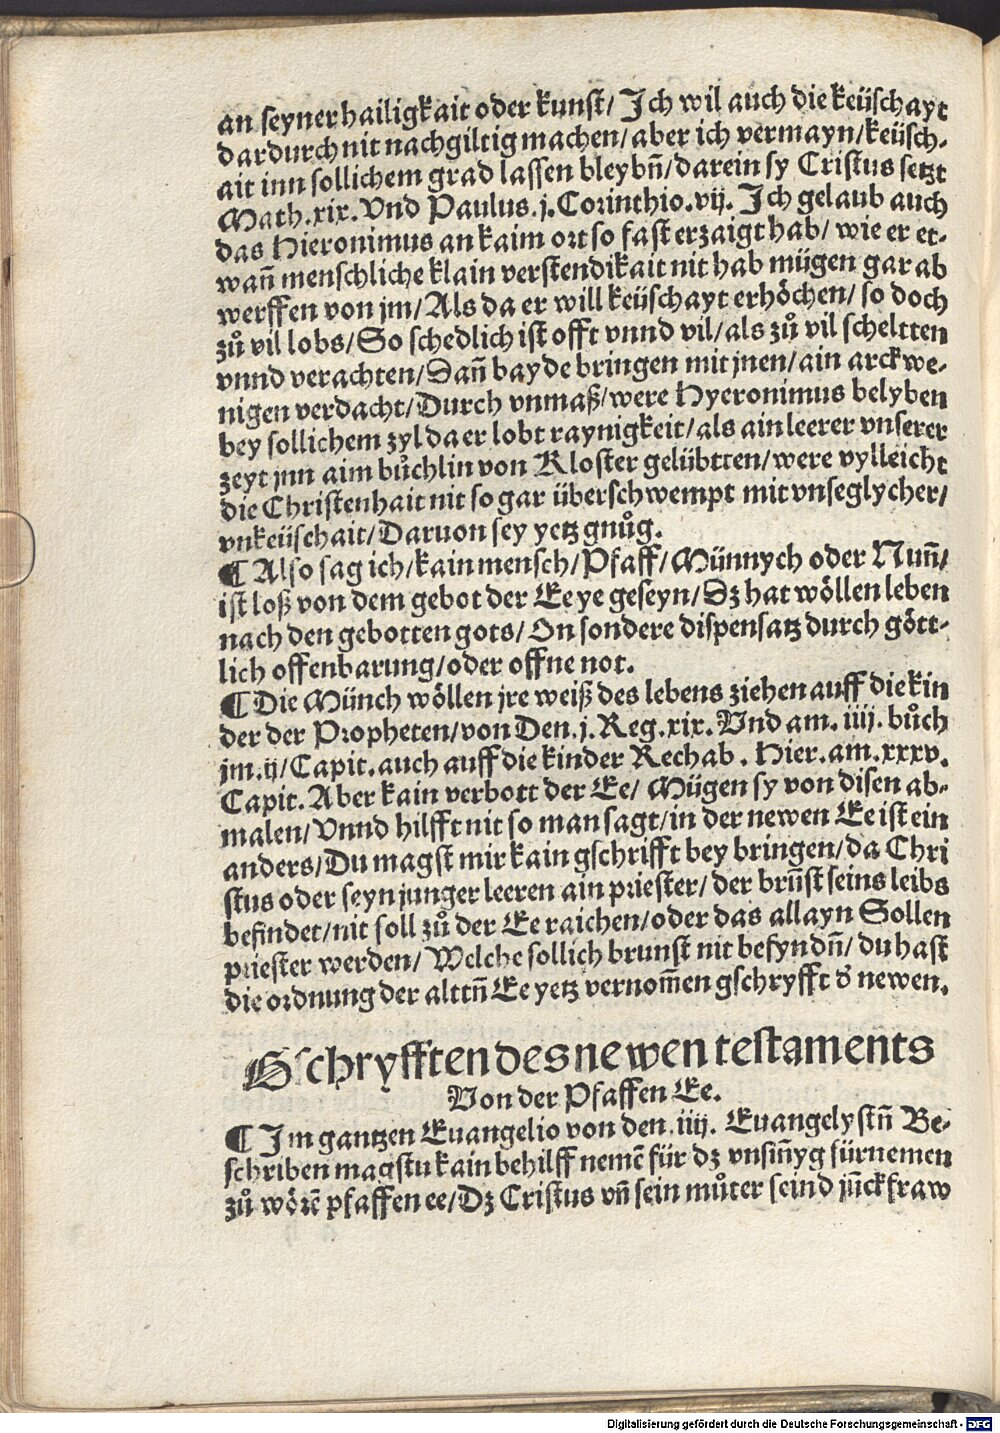 an seyner hailigkait oder kunst/ Ich wil auch die keüschayt
dardurch nit nachgiltig machen/ aber ich vermayn/ keüsch-
ait inn sollichem grad lassen bleybñ/ darein sy Cristus setzt
Math.xix. Vnd Paulus.j.Corinthio.vij. Ich gelaub auch
das Hieronimus an kaim ort so fast erzaigt hab/ wie er et-
wañ menschliche klain verstendikait nit hab mügen gar ab
werffen von jm/ Als da er will keüschayt erhöchen/ so doch
zů vil lobs/ So schedlich ist offt vnnd vil/ als zů vil scheltten
vnnd verachten/ Dañ bayde bringen mit jnen/ ain arckwe-
nigen verdacht/ Durch vnmaß/ were Hyeronimus belyben
bey sollichem zyl da er lobt raynigkeit/ als ain leerer vnserer
zeyt jnn aim bůchlin von Kloster gelübtten/ were vylleicht
die Christenhait nit so gar überschwempt mit vnseglycher/
vnkeüschait/ Daruon sey yetz gnůg.
¶ Also sag ich/ kain mensch/ Pfaff/ Münnych oder Nuñ/
ist loß von dem gebot der Ee ye geseyn/ Dz hat wöllen leben
nach den gebotten gots/ On sondere dispensatz durch gött-
lich offenbarung/ oder offne not.
¶ Die Münch wöllen jre weiß des lebens ziehen auff die kin
der der Propheten/ von Den.j.Reg.xix. Vnd am.iiij. bůch
jm.ij/ Capit. auch auff die kinder Rechab. Hier.am.xxxv.
Capit. Aber kain verbott der Ee/ Mügen sy von disen ab-
malen/ Vnnd hilfft nit so man sagt/ in der newen Ee ist ein
anders/ Du magst mir kain gschrifft bey bringen/ da Chri
stus oder seyn junger leeren ain priester/ der brüst seins leibs
befindet/ nit soll zů der Ee raichen/ oder das allayn Sollen
priester werden/ Welche sollich brunst nit befyndñ/ du hast
die ordnung der alttñ Ee yetz vernom̄en gschryfft d̕ newen.
Gschryfften des newen testaments
Von der Pfaffen Ee.
¶ Im gantzen Euangelio von den.iiij. Euangelystñ Be-
schriben magstu kain behilff nemē für dz vnsiñyg fürnemen
zů wörē pfaffen ee/ Dz Cristus vñ sein můter seind jückfraw
Digitalisierung gefördert durch die Deutsche Forschungsgemeinschaft - DFG